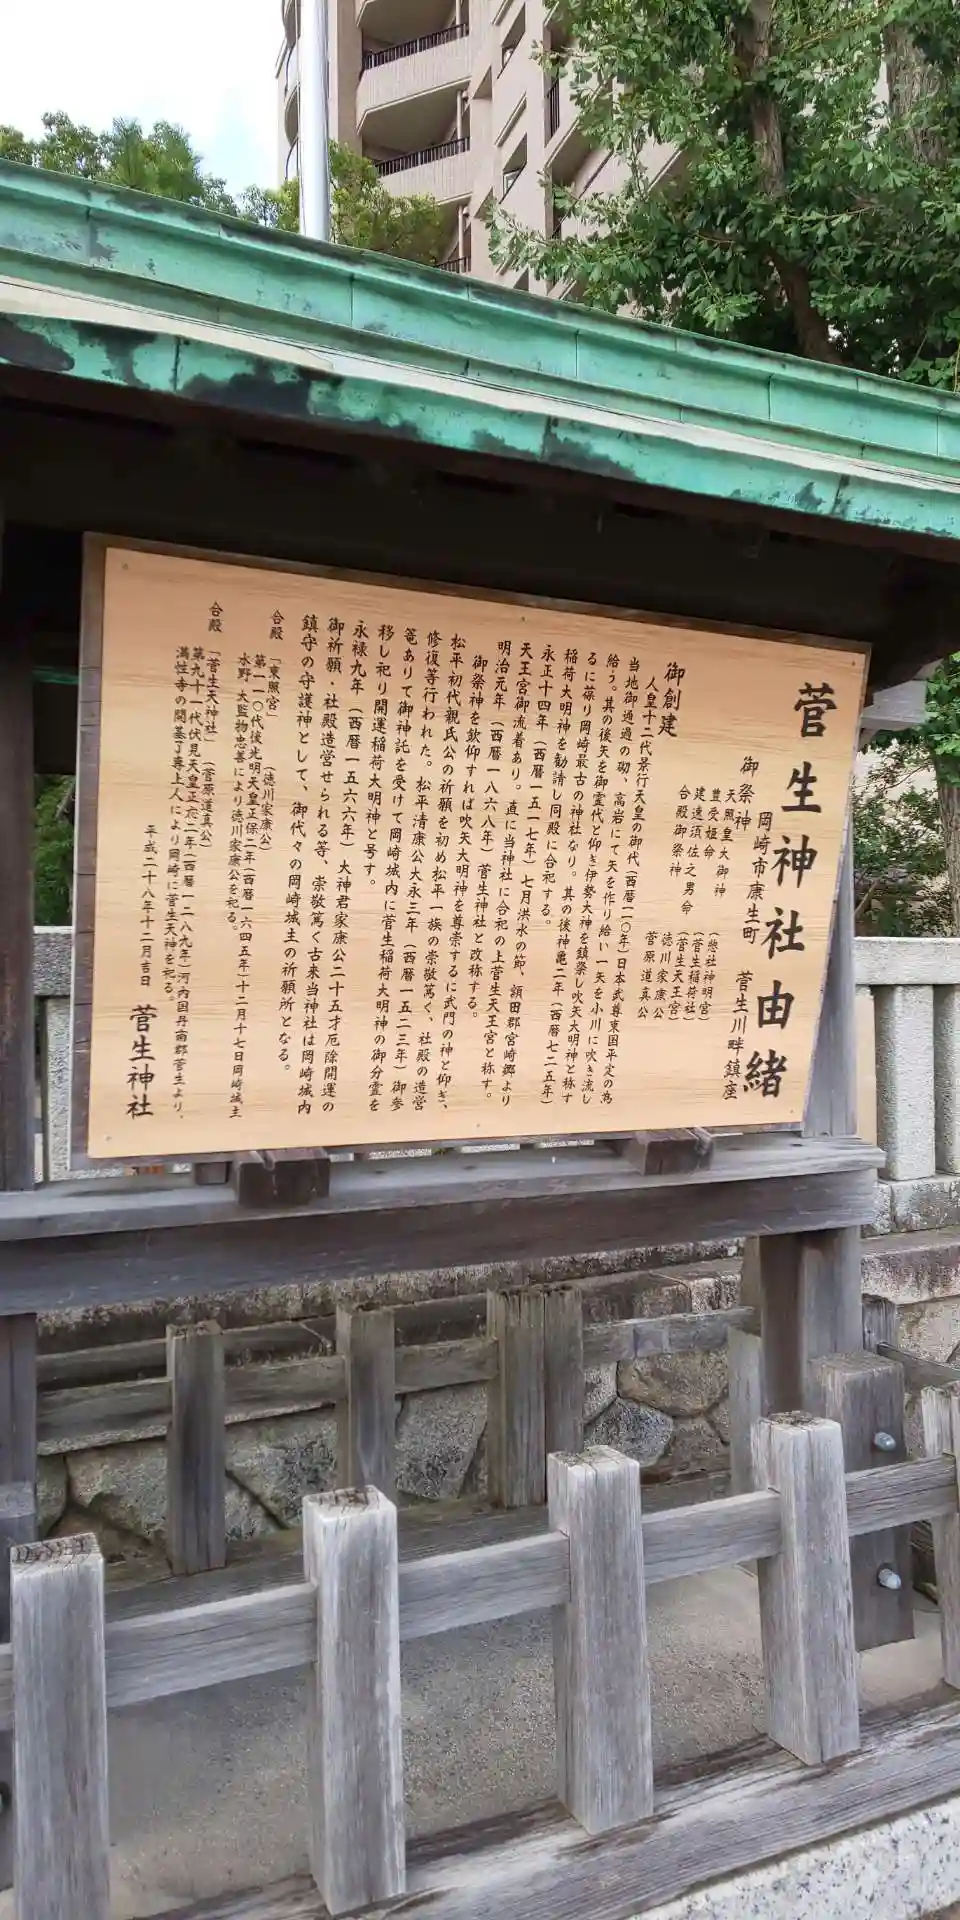 菅生神社由緒
岡崎市康生町 菅生川畔鎮座
御祭神
天照皇大御神 (惣社神明宮)
豊受姫命 (菅生稲荷社)
建速須佐之男命 (菅生天王宮)
合殿御祭神 徳川家康公
菅原道真公
御創建
人皇十二代景行天皇の御代(西暦一一〇年)日本武尊東国平定の為
当地御通過の砌、高岩にて矢を作り給い一矢を小川に吹き流し
給う。其の後矢を御霊代と仰ぎ伊勢大神を鎮祭し吹矢大明神と称す
るに葆り岡崎最古の神社なり。其の後神亀二年(西暦七二五年)
稲荷大明神を勧請し同殿に合祀する。
永正十四年(西暦一五一七年)七月洪水の節、額田郡宮崎郷より
天王宮御流着あり。直に当神社に合祀の上菅生天王宮と称す。
明治元年(西暦一八六八年)菅生神社と改称する。
御祭神を欽仰すれば吹矢大明神を尊崇するに武門の神と仰ぎ、
松平初代親氏公の祈願を初め松平一族の崇敬篤く、社殿の造営
修復等行われた。松平清康公大永三年(西暦一五二三年)御参
篭ありて御神託を受けて岡崎城内に菅生稲荷大明神の御分霊を
移し祀り開運稲荷大明神と号す。
永禄九年(西暦一五六六年)大神君家康公二十五才厄除開運の
御祈願・社殿造営せられる等、崇敬篤く古来当神社は岡崎城内
鎮守の守護神として、御代々の岡崎城主の祈願所となる。
合殿 「東照宮」 (徳川家康公)
第一一〇代後光明天皇正保二年(西暦一六四五年)十二月十七日岡崎城主
水野・大監物忠善により徳川家康公を祀る。
合殿 「菅生天神社」(菅原道真公)
第九十一代伏見天皇正応二年(西暦一二八九年)河内国丹南郡菅生より、
満性寺の開基了専上人により岡崎に菅生天神を祀る。
平成二十八年十二月吉日
菅生神社